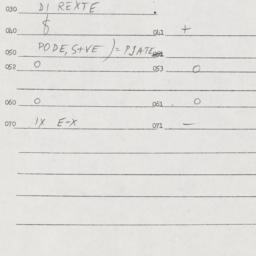 030 DI REXTE
040 041 +
050 PODE, S+VE ) = PJATE
052 0 053 0
060 0 061 0
070 1X E-X 071 -